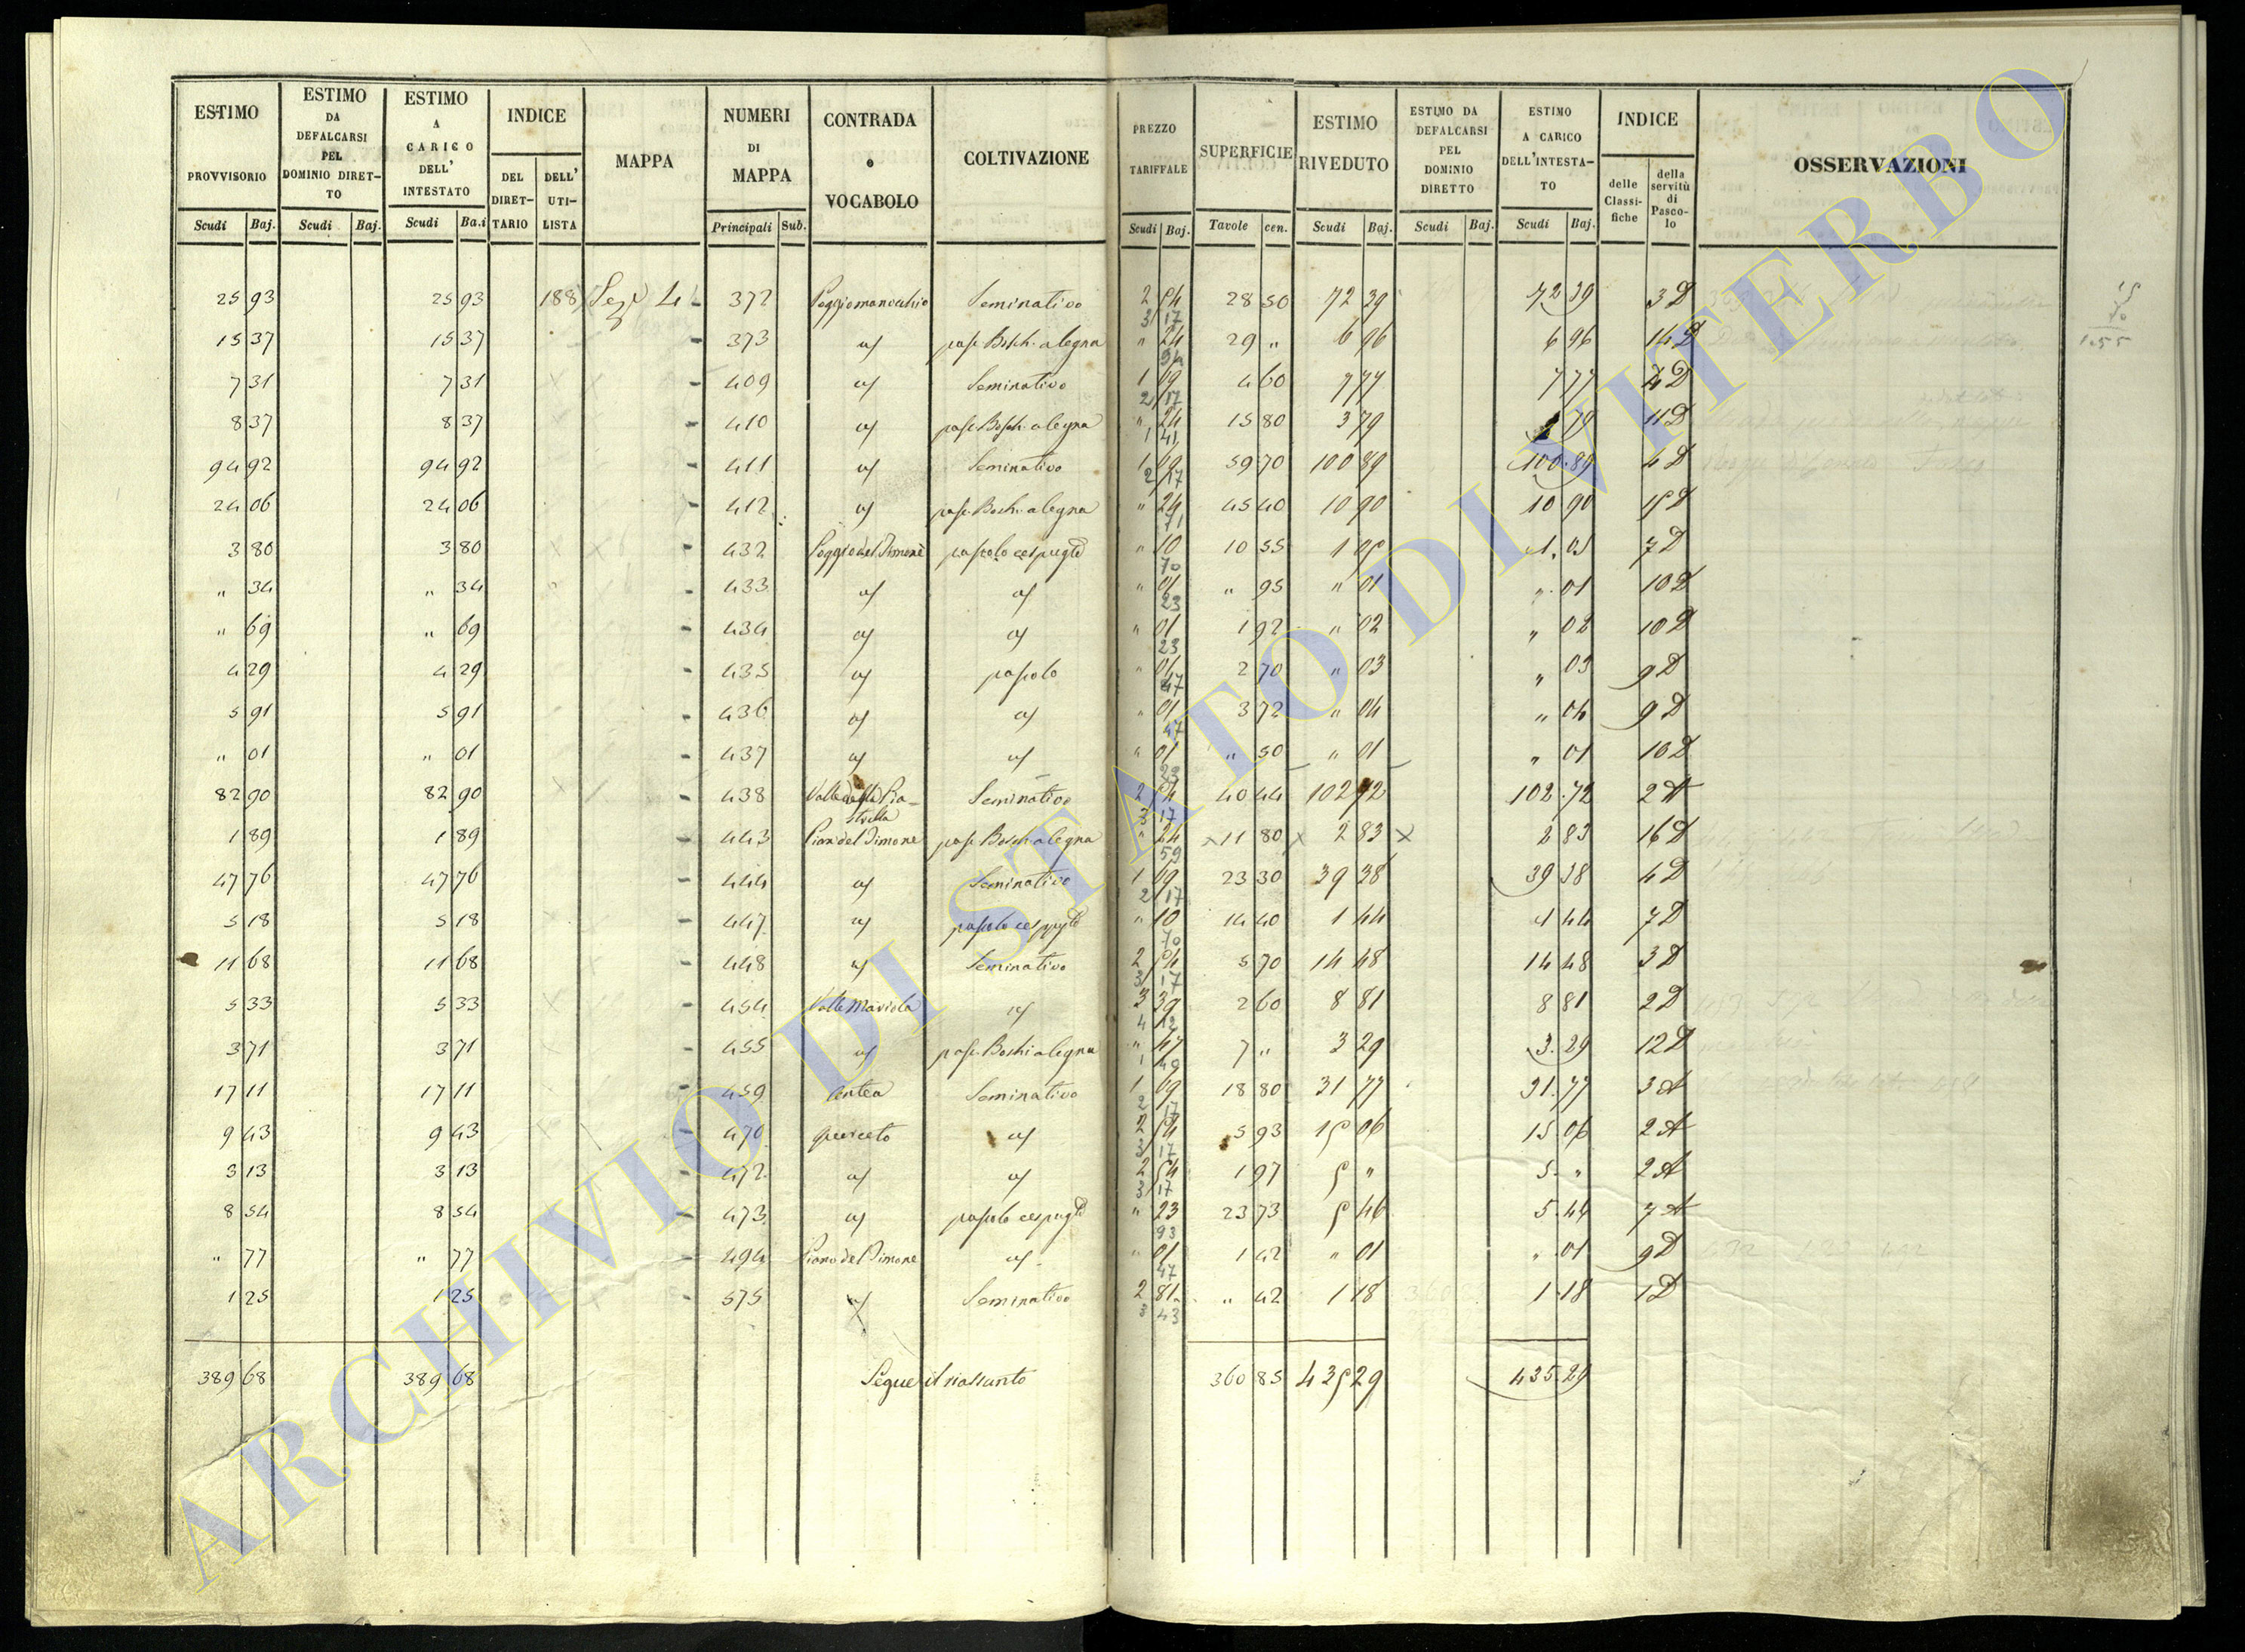 ESTIMO PROVVISORIO | ESTIMO DA DEFALCARSI PEL DOMINIO DIRET-TO | ESTIMO A CARICO DELL' INTESTATO | INDICE DEL DIRET-TARIO | DELL' UTI-LISTA | MAPPA | NUMERI DI MAPPA | CONTRADA o VOCABOLO | COLTIVAZIONE | PREZZO TARIFFALE | SUPERFICIE | ESTIMO RIVEDUTO | ESTIMO DA DEFALCARSI PEL DOMINIO DIRETTO | ESTIMO A CARICO DELL'INTESTA-TO | INDICE delle Classi-fiche | della servitù di Pasco-lo | OSSERVAZIONI
Scudi Baj. | Scudi Baj. | Scudi Ba.i | Principali Sub. | Scudi Baj. | Tavole cen. | Scudi Baj. | Scudi Baj. | Scudi Baj.
25 93 | 25 93 | 188 | Sez. 4 | 372 | Poggiomanocchio | Seminativo | 2 54 | 3 17 | 28 50 | 72 39 | 72 39 | 3 D
15 37 | 15 37 | 373 | | pasc. Bosch. a legna | " 24 | 29 " | 6 96 | 6 96 | 14 D
7 31 | 7 31 | 409 | | Seminativo | 1 69 | 2 17 | 4 60 | 7 77 | 7 77 | 4 D
8 37 | 8 37 | 410 | | pasc. Bosch. a legna | " 24 | 1 41 | 15 80 | 3 79 | 3 79 | 11 D
94 92 | 94 92 | 411 | | Seminativo | 1 69 | 2 17 | 59 70 | 100 89 | 100.89 | 4 D
24 06 | 24 06 | 412 | | pasc. Bosch. a legna | " 24 | 71 | 45 40 | 10 90 | 10 90 | 15 D
3 80 | 3 80 | 432 | Poggio del Timone | pascolo cespugl | " 10 | 70 | 10 55 | 1 05 | 1.05 | 7 D
" 34 | " 34 | 433 | " 01 | 23 | " 95 | " 01 | " 01 | 10 D
" 69 | " 69 | 434 | " 01 | 23 | 1 92 | " 02 | " 02 | 10 D
4 29 | 4 29 | 435 | | pascolo | " 01 | 47 | 2 70 | " 03 | " 03 | 9 D
5 91 | 5 91 | 436 | " 01 | 47 | 3 72 | " 04 | " 04 | 9 D
" 01 | " 01 | 437 | " 01 | 23 | " 50 | " 01 | " 01 | 10 D
82 90 | 82 90 | 438 | | Seminativo | 2 54 | 3 17 | 40 44 | 102 72 | 102.72 | 2 A
1 89 | 1 89 | 443 | Pian del Timone | pasc. Bosch. a legna | " 24 | 59 | 11 80 | 2 83 | 2 83 | 16 D
47 76 | 47 76 | 444 | | Seminativo | 1 69 | 2 17 | 23 30 | 39 38 | 39 38 | 4 D
5 18 | 5 18 | 447 | | pascolo cespugl | " 10 | 70 | 14 40 | 1 44 | 1 44 | 7 D
11 68 | 11 68 | 448 | | Seminativo | 2 54 | 3 17 | 5 70 | 14 48 | 14 48 | 3 D
5 33 | 5 33 | 454 | Valle Mariola | 3 39 | 2 60 | 8 81 | 8 81 | 2 D
3 71 | 3 71 | 455 | | pasc. Boschi a legna | " 47 | 7 " | 3 29 | 3.29 | 12 D
17 11 | 17 11 | 459 | Centea | Seminativo | 1 69 | 2 17 | 18 80 | 31 77 | 31.77 | 3 A
9 43 | 9 43 | 470 | querceto | 2 54 | 3 17 | 5 93 | 15 06 | 15 06 | 2 A
3 13 | 3 13 | 472 | 2 54 | 3 17 | 1 97 | 5 " | 5 " | 2 A
8 54 | 8 54 | 473 | | pascolo cespugl | " 23 | 93 | 23 73 | 5 46 | 5.46 | 7 A
" 77 | " 77 | 494 | Piano del Timone | " 01 | 47 | 1 42 | " 01 | " 01 | 9 D
1 25 | 1 25 | 575 | | Seminativo | 2 81 | 3 43 | " 42 | 1 18 | 1 18 | 1 D
389 68 | 389 68 | Segue il riassunto | 360 85 | 435 29 | 435.29
1.55
ARCHIVIO DI STATO DI VITERBO